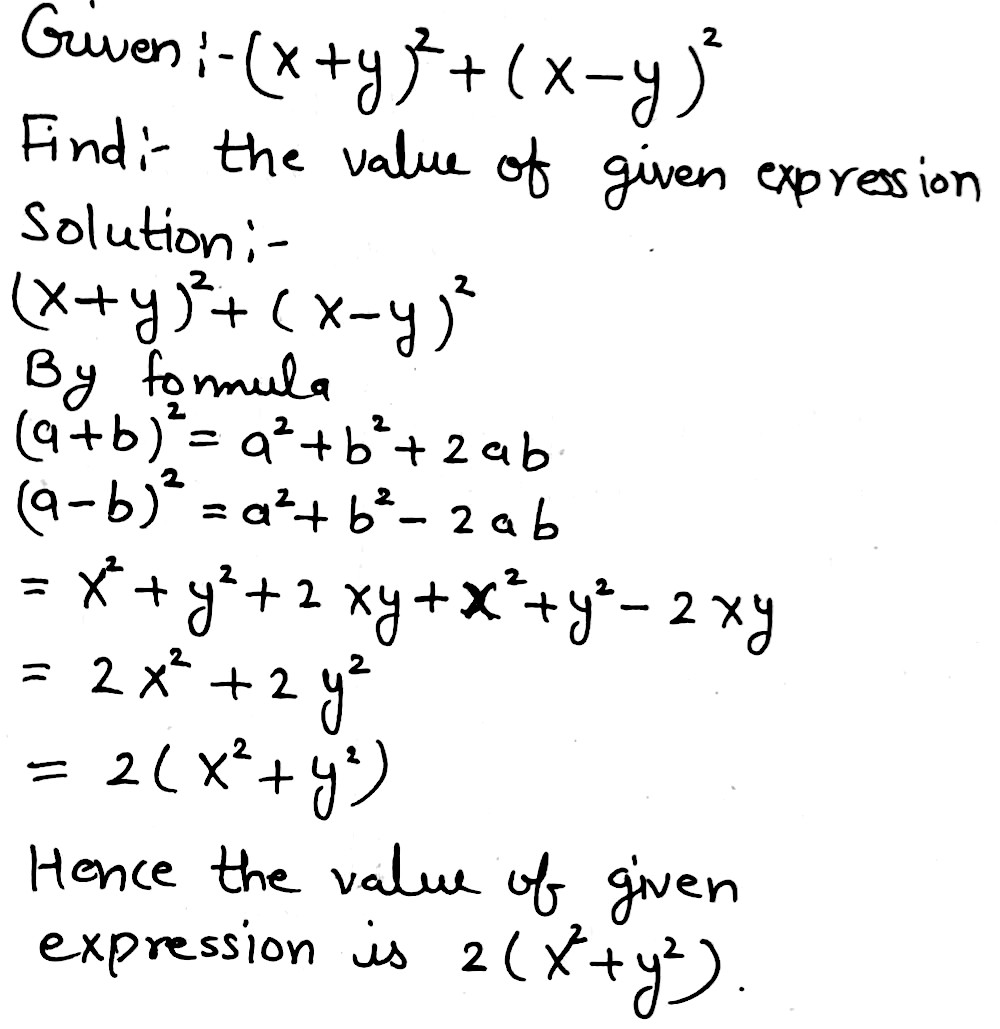 Given :- (x+y)² + (x-y)²
Find :- the value of given expression
Solution :-
(x+y)² + (x-y)²
By formula
(a+b)² = a² + b² + 2ab
(a-b)² = a² + b² - 2ab
= x² + y² + 2xy + x² + y² - 2xy
= 2x² + 2y²
= 2(x² + y²)
Hence the value of given
expression is 2(x² + y²).